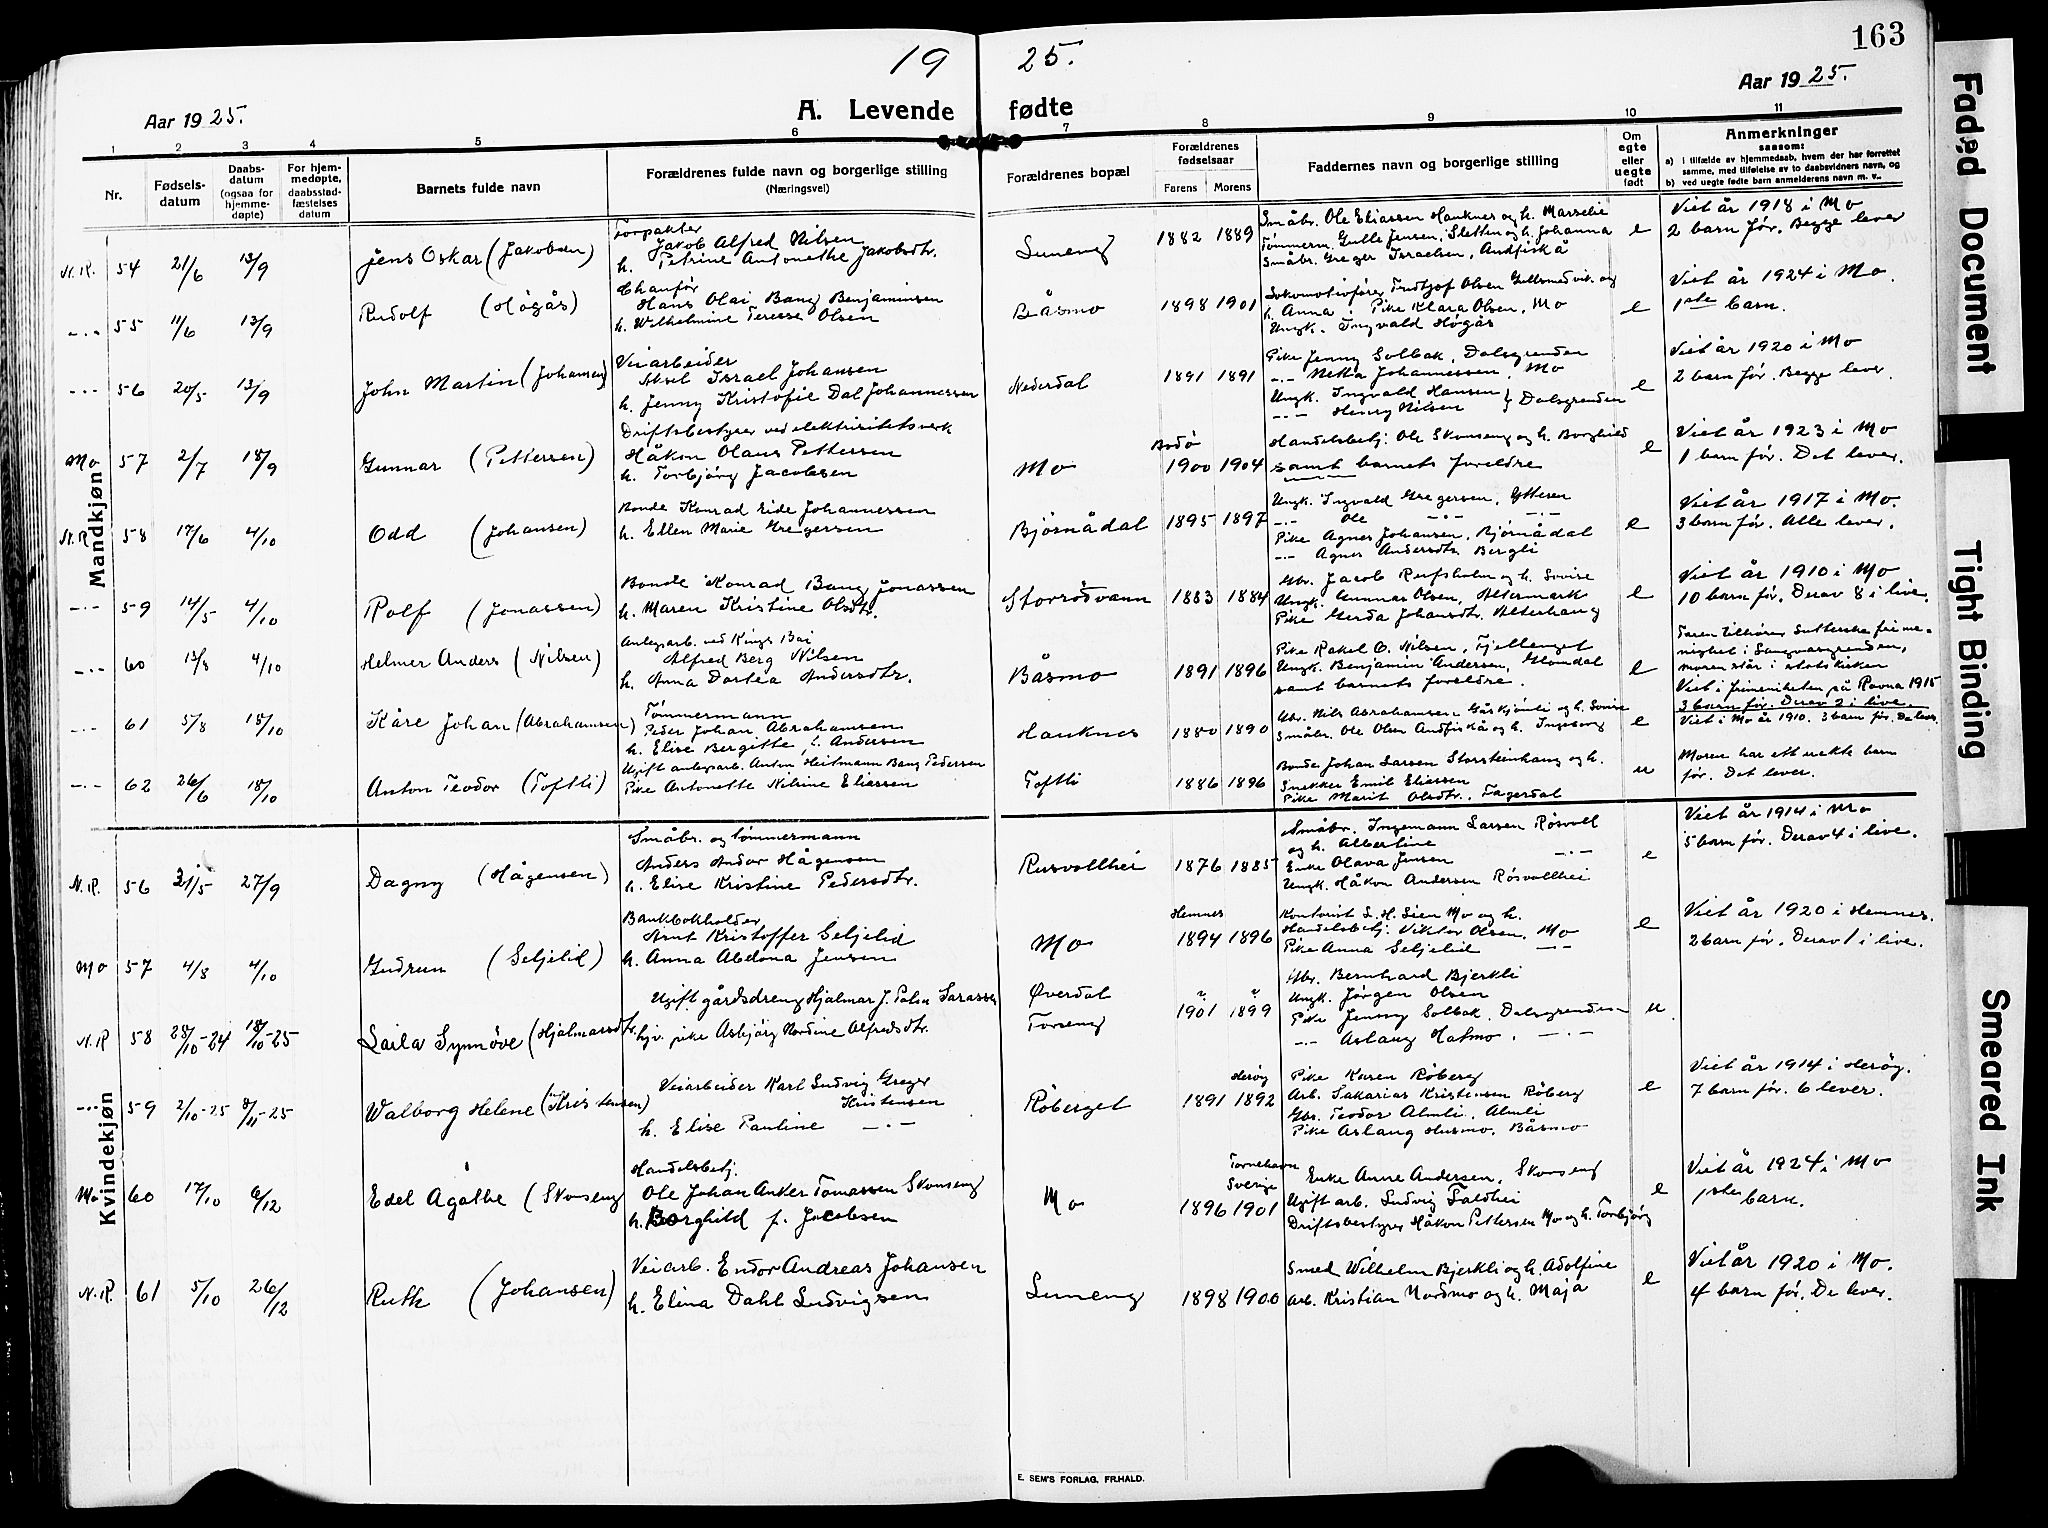 163
19 25.
Aar 1925.
A. Levende fødte
Aar 1925.
1 2 3 4 5 6 7 8 9 10 11
Nr.
Fødsels-datum
Daabs-datum (ogsaa for hjemme-døpte)
For hjem-medøpte, daabsstad-fæstelses datum
Barnets fulde navn
Forældrenes fulde navn og borgerlige stilling
(Næringsvei)
Forældrenes bopæl
Forældrenes fødselsaar
Farens Morens
Faddernes navn og borgerlige stilling
Om egte eller uegte født
Anmerkninger
saasom:
a) i tilfælde av hjemmedaab, hvem der har forrettet samme, med tilføielse av to daabsvidners navn, og
b) ved uegte fødte barn anmelderens navn m. v..
Mandkjøn
N.R. 54 21/6 13/9 Jens Oskar (Jakobsen)
Forpakter
Jakob Alfred Nilsen
h. Petrine Antonethe Jakobsdtr.
Luneng 1882 1889
Småbr. Ole Eliassen Hauknes og h. Marselie
Tømmerm. Gulle Jensen, Sletten og h. Johanna
Småbr. Greger Israelsen, Andfiskå
e
Viet år 1918 i Mo
2 barn før. Begge lever
-.- 55 11/6 13/9 Rudolf (Høgås)
Chauför
Hans Olai Bang Benjaminsen
h. Wilhelmine Terese Olsen
Båsmo 1898 1901
Lokomotivfører Fridtjof Olsen Gullsmedvik og
h. Anna. Pike Klara Olsen, Mo
Ungk. Ingvald Høgås
e
Viet år 1924 i Mo.
1ste barn.
-.- 56 20/5 13/9 John Martin (Johansen)
Veiarbeider
Aksel Israel Johansen
h. Jenny Kristofie Dal Johannessen
Nederdal 1891 1891
Pike Jenny Solbak, Dalsgrenden
-.- Netta Johannessen, Mo
Ungk. Ingvald Hansen
-.- Henry Nilsen } Dalsgrenden
e
Viet år 1920 i Mo
2 barn før. Begge lever.
Mo 57 2/7 18/9 Gunnar (Pettersen)
Driftsbestyrer ved elektrisitetsverk
Håkon Olaus Pettersen
h. Torbjørg Jacobsen
Mo
Bodø
1900 1904
Handelsbetj. Ole Skonseng og h. Borghild
samt barnets foreldre
e
Viet år 1923 i Mo
1 barn før. Det lever.
N.R 58 17/6 4/10 Odd (Johansen)
Bonde Konrad Eide Johannessen
h. Ellen Marie Gregersen
Bjørnådal 1895 1897
Ungk. Ingvald Gregersen, Ytteren
-.- Ole -.- -.-
Pike Agnes Johansen, Bjørnådal
-.- Agnes Andersdtr. Bergli
e
Viet år 1917 i Mo.
3 barn før. Alle lever.
-.- 59 14/5 4/10 Rolf (Jonassen)
Bonde Konrad Bang Jonassen
h. Maren Kristine Olsdtr.
Storrødvann 1883 1884
Gbr. Jacob Rufsholm og h. Lovise
Ungk. Gunnar Olsen, Altermark
Pike Gerda Johansdtr. Alterhaug
e
Viet år 1910 i Mo
10 barn før. Derav 8 i live.
-.- 60 13/8 4/10 Helmer Anders (Nilsen)
Anlegsarb. ved Kings Bai
Alfred Berg Nilsen
h. Anna Dortea Andersdtr.
Båsmo 1891 1896
Pike Rakel O. Nilsen, Fjellenget
Ungk. Benjamin Andersen, Glomdal
samt barnets foreldre.
e
Faren tilhører Lutherske frime-
nighet i Langvasgrenden,
moren står i statskirken
Viet i frimenigheten på Ravna 1915
3 barn før. Derav 2 i live.
-.- 61 5/8 18/10 Kåre Johan (Abrahamsen)
Tømmermann
Peder Johan Abrahamsen
h. Elise Bergitte, f. Andersen
Hauknes 1880 1890
Gbr. Nils Abrahamsen Gåskjønli og h. Lovise
Småbr. Ole Olsen Andfiskå og h. Ingeborg
e
Viet i Mo år 1910. 3 barn før. De lever.
-.- 62 26/6 18/10 Anton Teodor (Toftli)
Ugift anlegsarb. Anton Heitmann Bang Pedersen
Pike Antonette Nilsine Eliassen
Toftli 1886 1896
Bonde Johan Larsen Storsteinhaug og h.
Snekker Emil Eliassen
Pike Marit Olsdtr. Fagerdal
u
Moren har ett uekte barn
før. Det lever.
Kvindekjøn
N.R. 56 31/5 27/9 Dagny (Hågensen)
Småbr. og tømmermann
Anders Andor Hågensen
h. Elise Kristine Pedersdtr.
Rusvollhei 1876 1885
Småbr. Ingemann Larsen Røsvoll
og h. Albertine
Enke Olava Jensen -.-
Ungk. Håkon Andersen Røsvollhei
e
Viet år 1914 i Mo
5 barn før. Derav 4 i live.
Mo 57 4/8 4/10 Gudrun (Seljelid)
Bankbokholder
Arnt Kristoffer Seljelid
h. Anna Abdona Jensen
Mo
Hemnes
1894 1896
Kontorist L. H. Lien Mo og h.
Handelsbetj. Viktor Olsen, Mo
Pike Anna Seljelid -.-
e
Viet år 1920 i Hemnes.
2 barn før. Derav 1 i live.
N.R 58 28/10-24 18/10-25 Laila Synnøve (Hjalmarsdtr.
Ugift gårdsdreng Hjalmar J. Palm Larassen
hjv. pike Asbjørg Nordine Alfredsdtr.
Øverdal
Forseng
1901 1899
Gbr. Bernhard Bjerkli
Ungk. Jørgen Olsen
Pike Jenny Solbak, Dalsgrenden
-.- Aslaug Hatmo. -.-
u
-.- 59 2/10-25 8/11-25 Walborg Helene (Kristensen)
Veiarbeider Karl Ludvig Greger
Kristensen
h. Elise Pauline -.-
Røberget
Herøy
1891 1892
Pike Karen Røberg
Arb. Sakarias Kristensen Røberg
Gbr. Teodor Almli, Almli
Pike Aslaug Husmo, Båsmo
e
Viet år 1914 i Herøy.
7 barn før. 6 lever.
Mo 60 17/10 6/12 Edel Agathe (Skonseng
Handelsbetj.
Ole Johan Anker Tomassen Skonseng
h. Borghild f. Jacobsen
Mo
Tornehavn
Sverige
1896 1901
Enke Anne Andersen, Skonseng
Ugift arb. Ludvig Faldhei
Driftsbestyrer Håkon Pettersen Mo og h. Torbjørg
e
Viet år 1924 i Mo
1ste barn.
N.R. 61 5/10 26/12 Ruth (Johansen)
Veiarb. Endor Andreas Johansen
h. Elina Dahl Ludvigsen
Luneng 1898 1900
Smed Wilhelm Bjerkli og h. Adolfine
Arb. Kristian Nordmo og h. Maja
e
Viet år 1920 i Mo.
4 barn før. De lever.
E. SEM'S FORLAG, FR.HALD.
Faded Document
Tight Binding
Smeared Ink